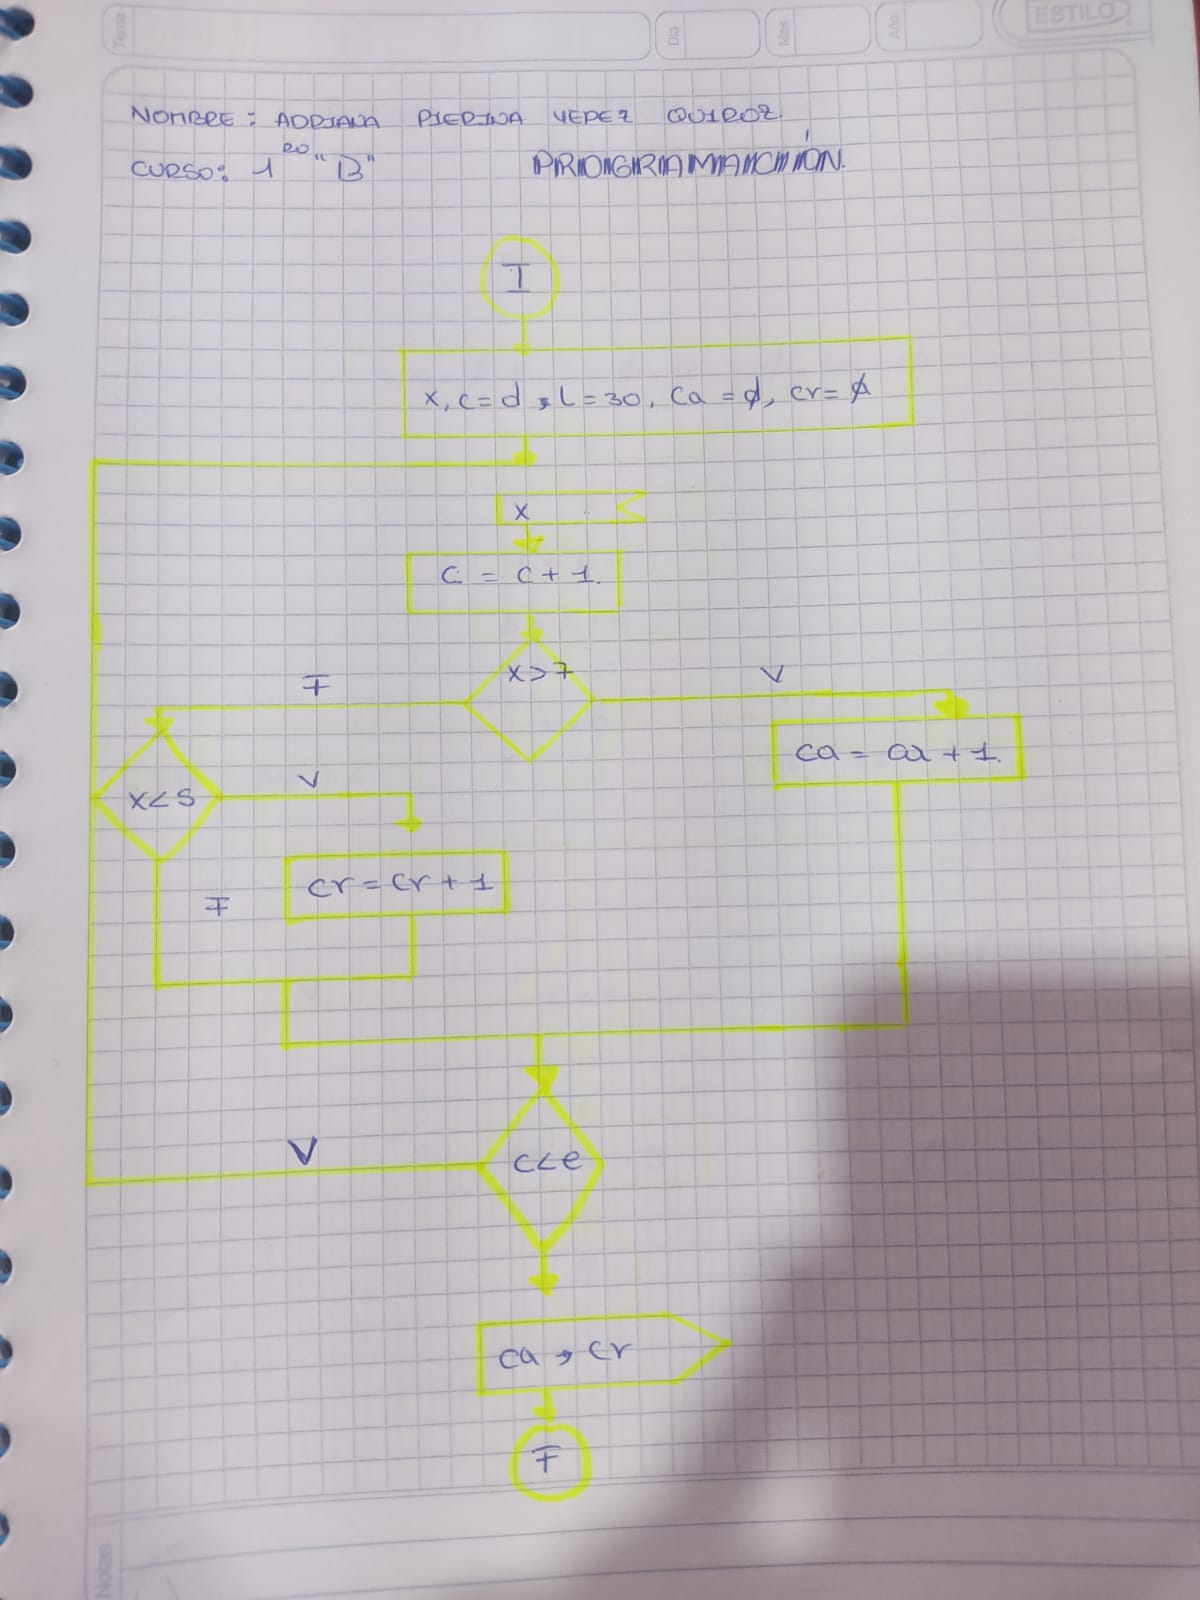 Tema
Día
Mes
Año
ESTILO
NOMBRE: ADRIANA PIERINA YEPEZ QUIROZ.
CURSO: 1 RO "B"
PROGRAMACIÓN.
I
x, c=d, L=30, ca=ø, cr=ø
x
c = c+1.
x>7
F
V
ca = ca + 1.
x<5
V
cr = cr + 1
F
V
c<e
ca, cr
F
Notas